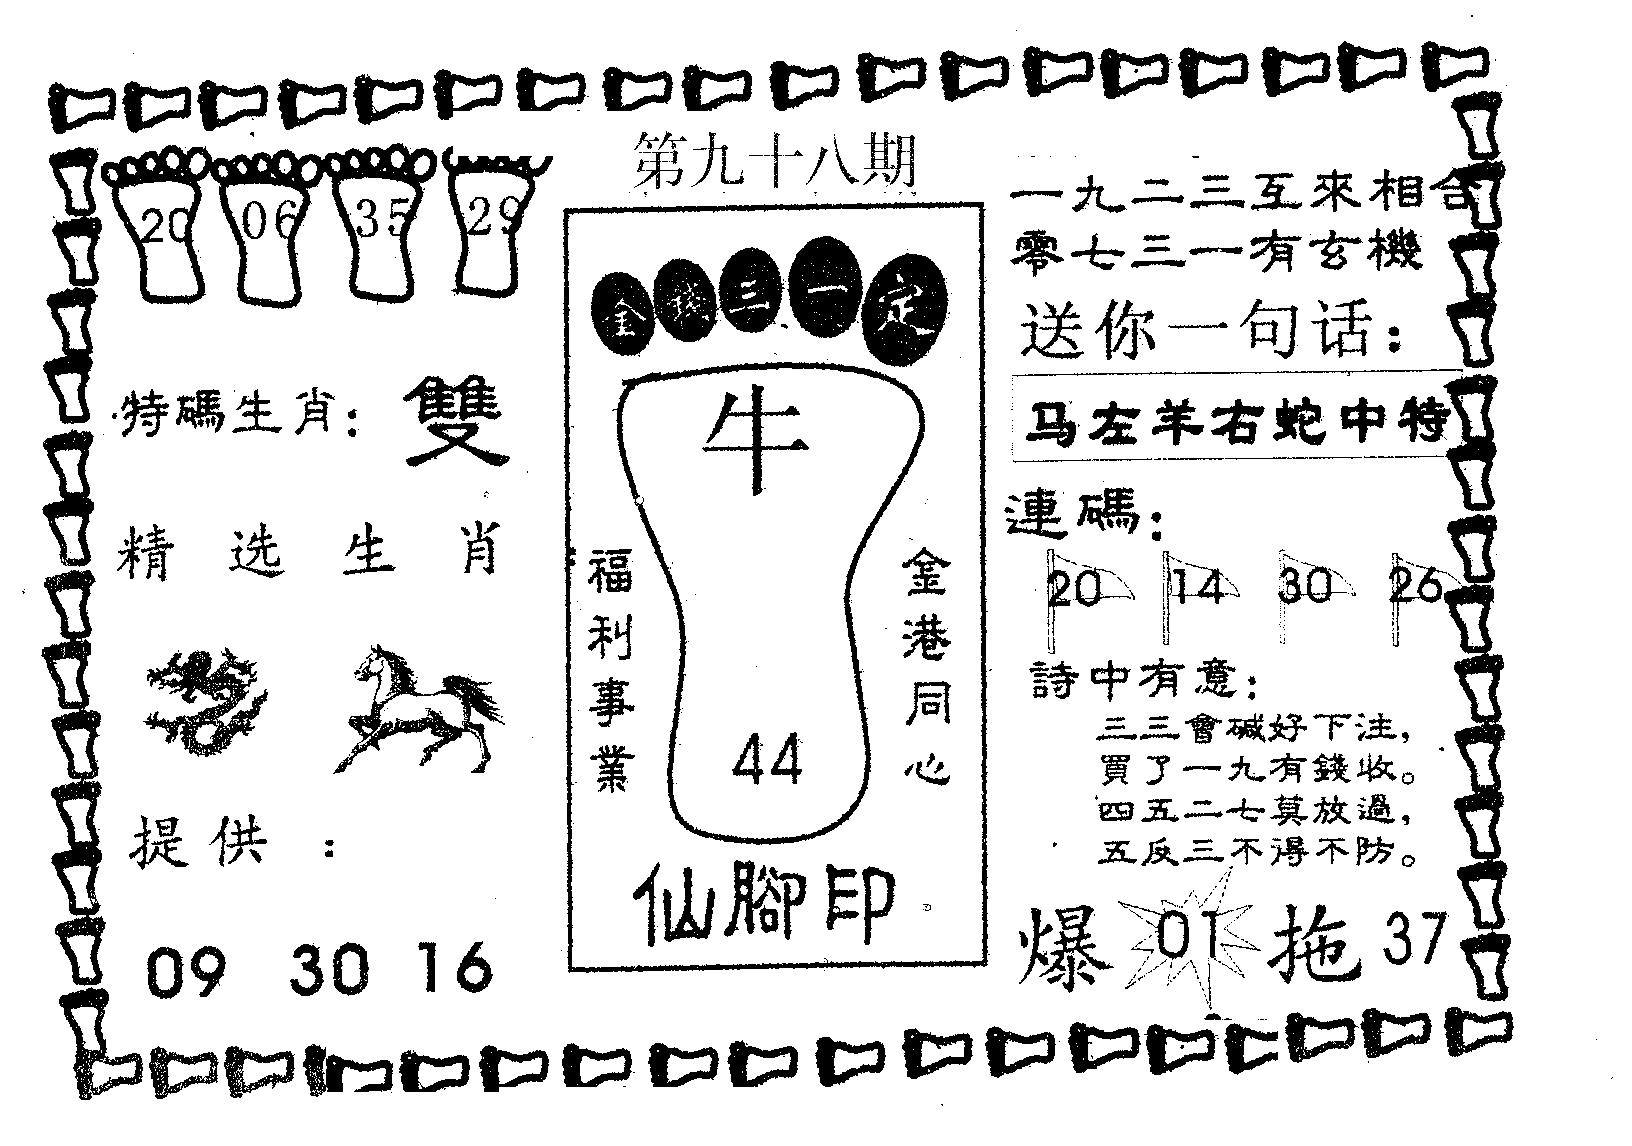 第九十八期
20 06 35 29
特碼生肖：雙
精选生肖
提供：
09 30 16
金錢三一定
牛
福利事業
金港同心
44
仙腳印
一九二三互來相合
零七三一有玄機
送你一句话：
马左羊右蛇中特
連碼：
20 14 30 26
詩中有意：
三三會碱好下注，
買了一九有錢收。
四五二七莫放過，
五反三不得不防。
爆 01 拖 37